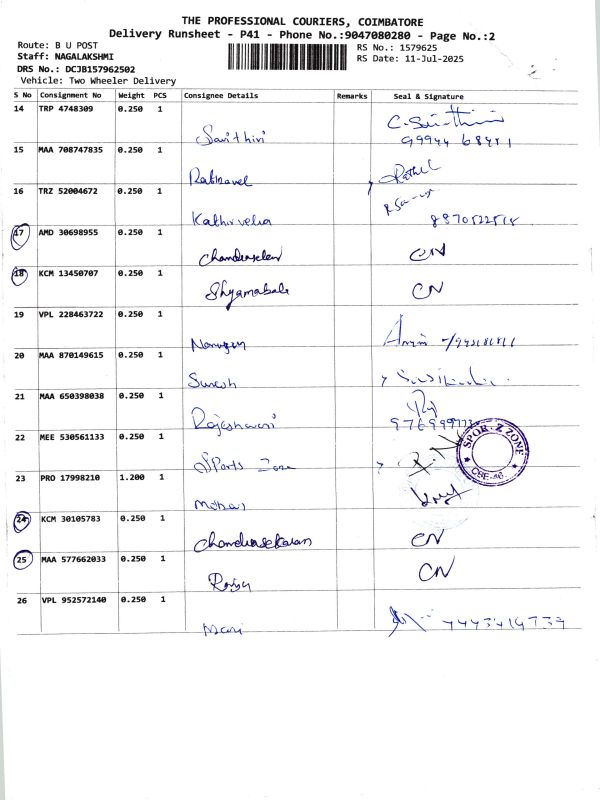 THE PROFESSIONAL COURIERS, COIMBATORE
Delivery Runsheet - P41 - Phone No.:9047080280 - Page No.:2
Route: B U POST
RS No.: 1579625
Staff: NAGALAKSHMI
RS Date: 11-Jul-2025
DRS No.: DCJB157962502
Vehicle: Two Wheeler Delivery
S No Consignment No Weight PCS Consignee Details Remarks Seal & Signature
14 TRP 4748309 0.250 1
Savithiri
15 MAA 708747835 0.250 1
16 TRZ 52004672 0.250 1
Kathirvelu
17 AMD 30698955 0.250 1
CN
18 KCM 13450707 0.250 1
Shyamabala CN
19 VPL 228463722 0.250 1
20 MAA 870149615 0.250 1
Suresh
21 MAA 650398038 0.250 1
Rajeshwari
22 MEE 530561133 0.250 1
Sports Zone
SPOR-Z ZONE
CBE-46.
23 PRO 17998210 1.200 1
Mohan
24 KCM 30105783 0.250 1
Chandrasekaran CN
25 MAA 577662033 0.250 1
CN
26 VPL 952572140 0.250 1
Mani